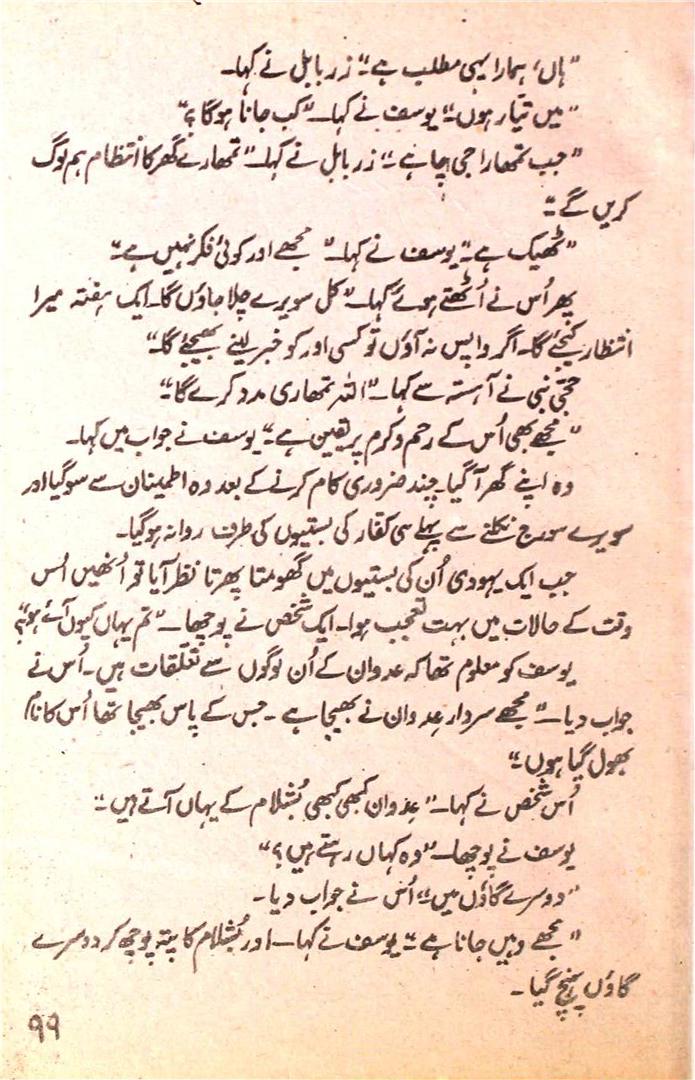 "ہاں، ہمارا یہی مطلب ہے"۔ زر بابل نے کہا۔
"میں تیّار ہوں"۔ یوسف نے کہا۔ "کب جانا ہوگا؟"
"جب تمھارا جی چاہے"۔ زر بابل نے کہا۔ "تمھارے گھر کا انتظام ہم لوگ
کریں گے"۔
"ٹھیک ہے"۔ یوسف نے کہا۔ "مجھے اور کوئی فکر نہیں ہے"۔
پھر اُس نے اُٹھتے ہوئے کہا۔ "کل سویرے چلا جاؤں گا۔ ایک ہفتہ میرا
انتظار کیجئے گا۔ اگر واپس نہ آؤں تو کسی اور کو خبر لینے بھیجئے گا"۔
حجّی نبی نے آہستہ سے کہا۔ "اللہ تمھاری مدد کرے گا"۔
"مجھے بھی اُس کے رحم و کرم پر یقین ہے"۔ یوسف نے جواب میں کہا۔
وہ اپنے گھر آگیا۔ چند ضروری کام کرنے کے بعد وہ اطمینان سے سوگیا اور
سویرے سورج نکلنے سے پہلے ہی کفّار کی بستیوں کی طرف روانہ ہوگیا۔
جب ایک یہودی اُن کی بستیوں میں گھومتا پھرتا نظر آیا تو اُنھیں اُس
وقت کے حالات میں بہت تعجب ہوا۔ ایک شخص نے پوچھا۔ "تم یہاں کیوں آئے ہو؟"
یوسف کو معلوم تھا کہ عدوان کے اُن لوگوں سے تعلّقات ہیں۔ اُس نے
جواب دیا۔ "مجھے سردار عدوان نے بھیجا ہے۔ جس کے پاس بھیجا تھا اُس کا نام
بھول گیا ہوں"۔
اُس شخص نے کہا۔ "عدوان کبھی کبھی بُشلام کے یہاں آتے ہیں"۔
یوسف نے پوچھا۔ "وہ کہاں رہتے ہیں؟"
"دوسرے گاؤں میں"۔ اُس نے جواب دیا۔
"مجھے وہیں جانا ہے"۔ یوسف نے کہا۔ اور بُشلام کا پتہ پوچھ کر دوسرے
گاؤں پہنچ گیا۔
۹۹